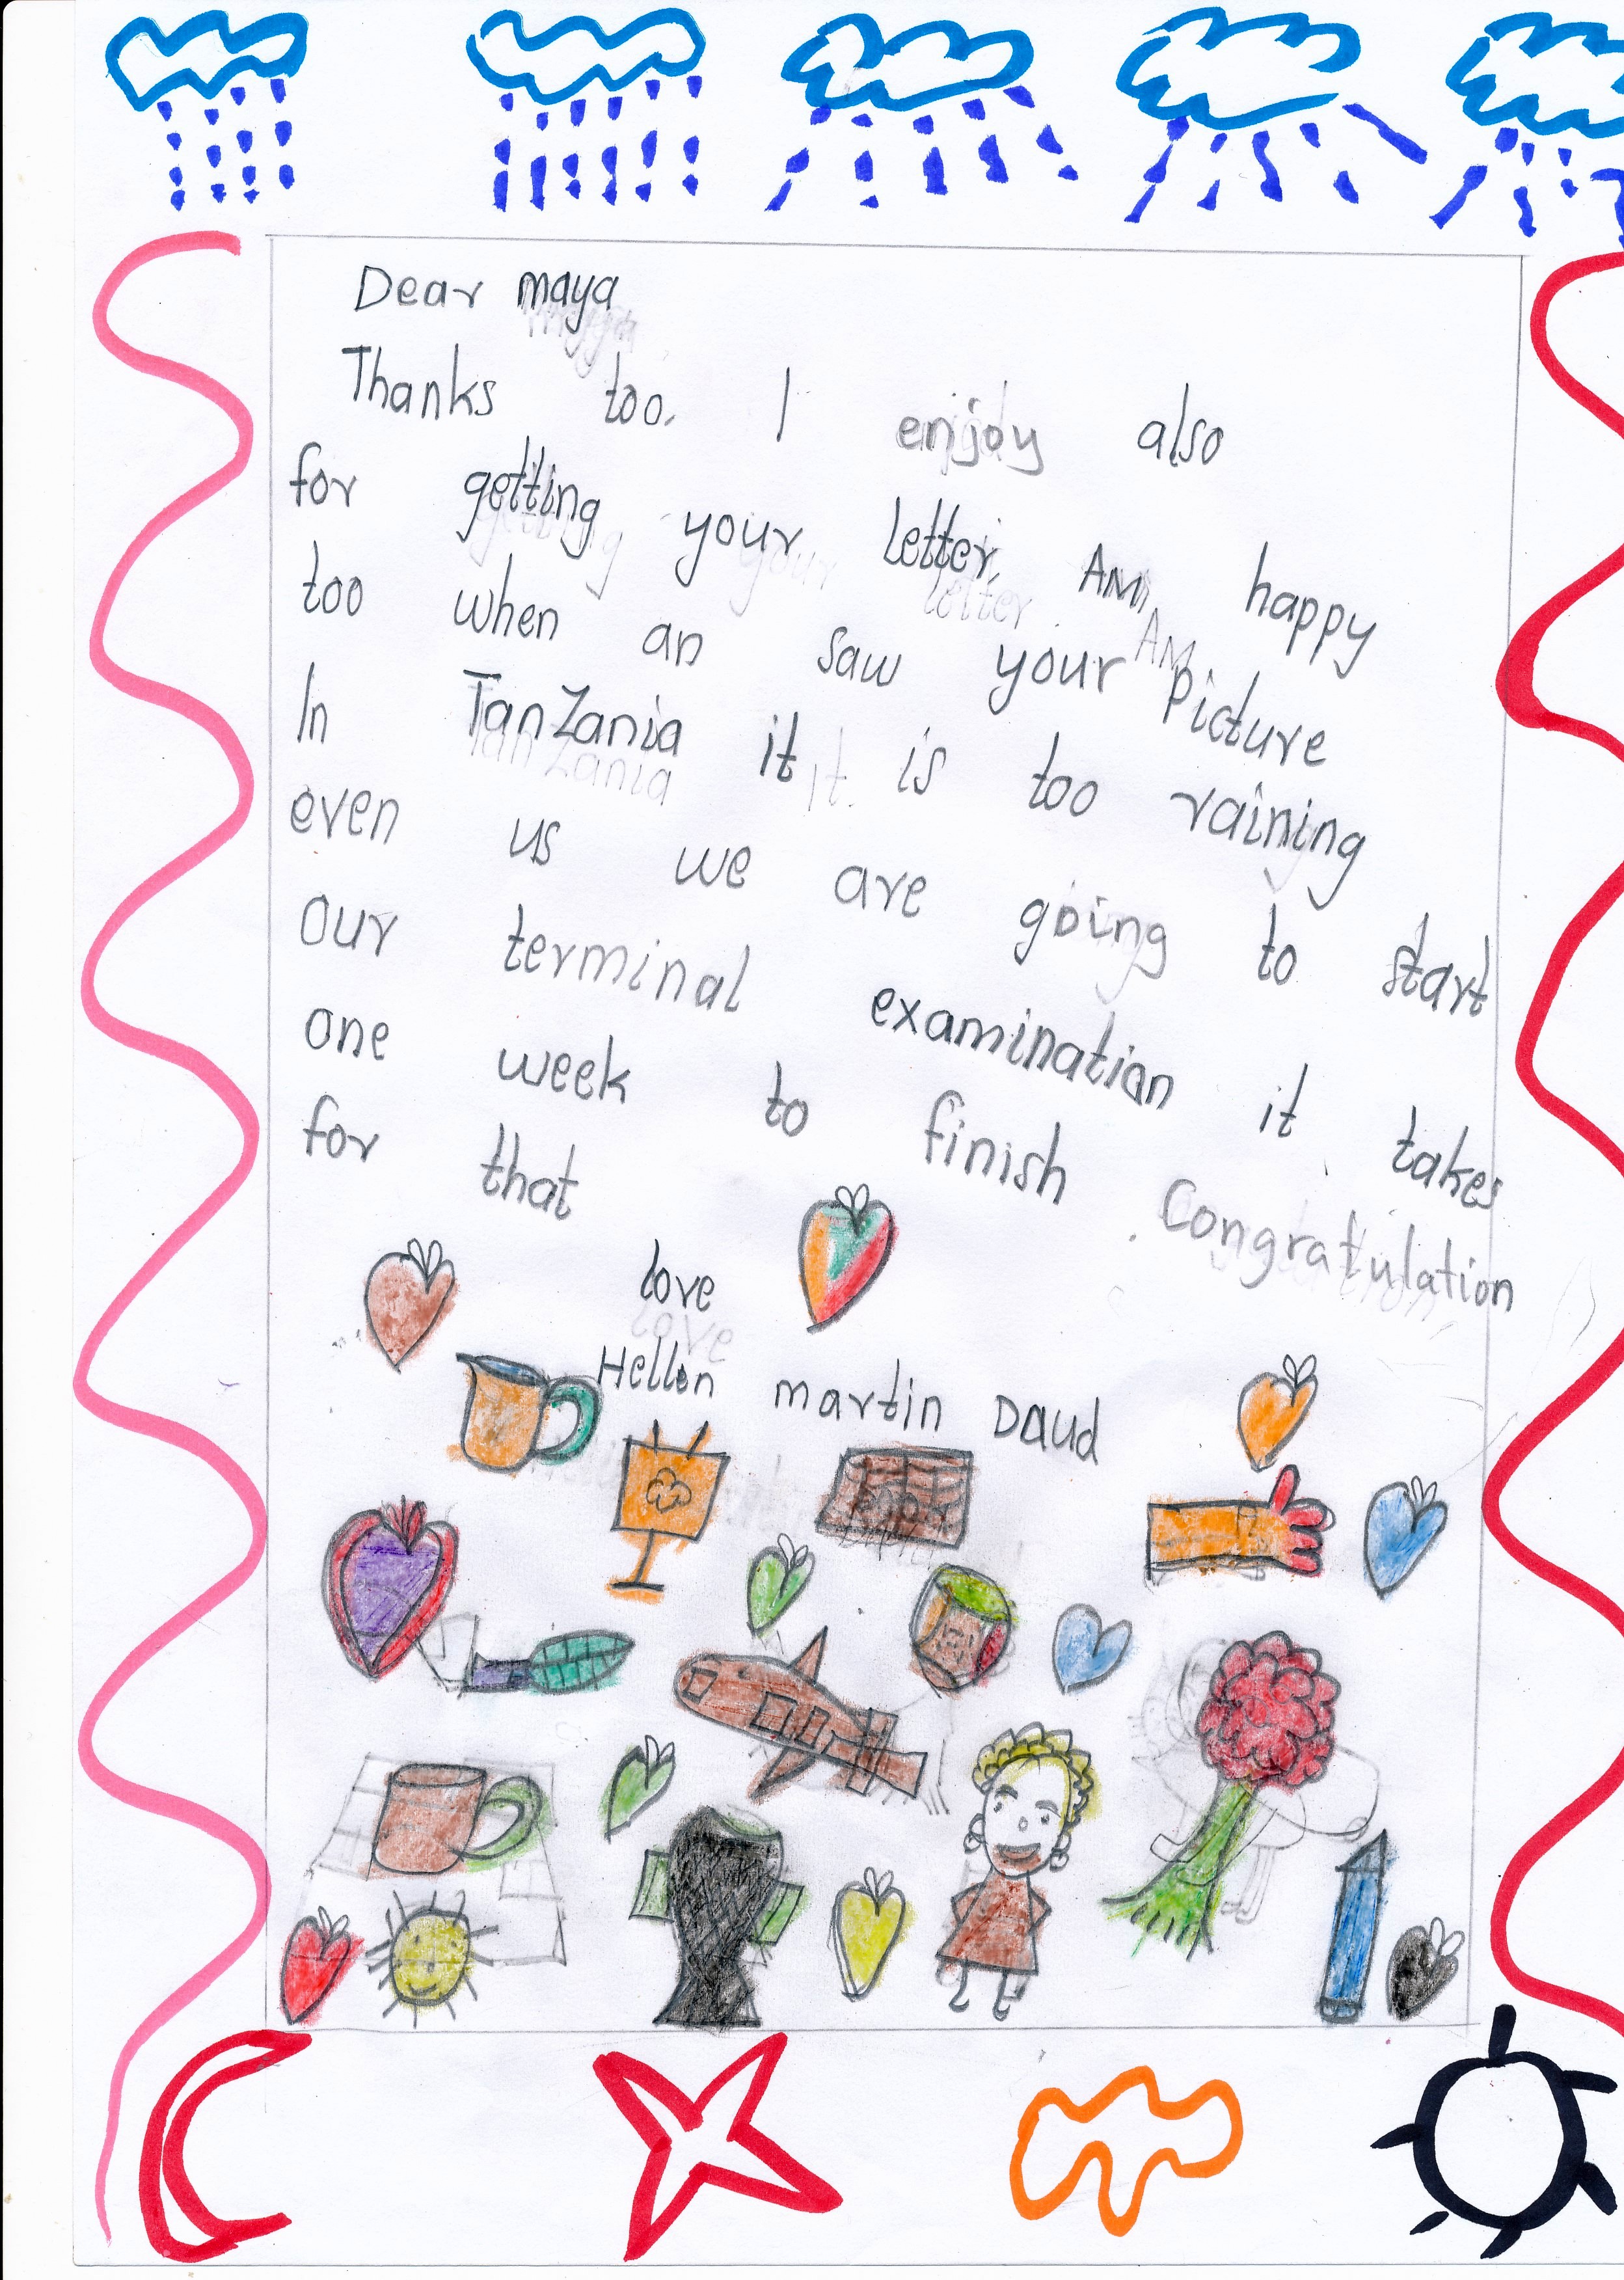 Dear maya
Thanks too. I enjoy also
for getting your letter, AM happy
too when an saw your Picture
In TanZania it is too raining
even us we are going to start
Our terminal examination it takes
one week to finish Congratulation
for that
love
Hellen martin Daud